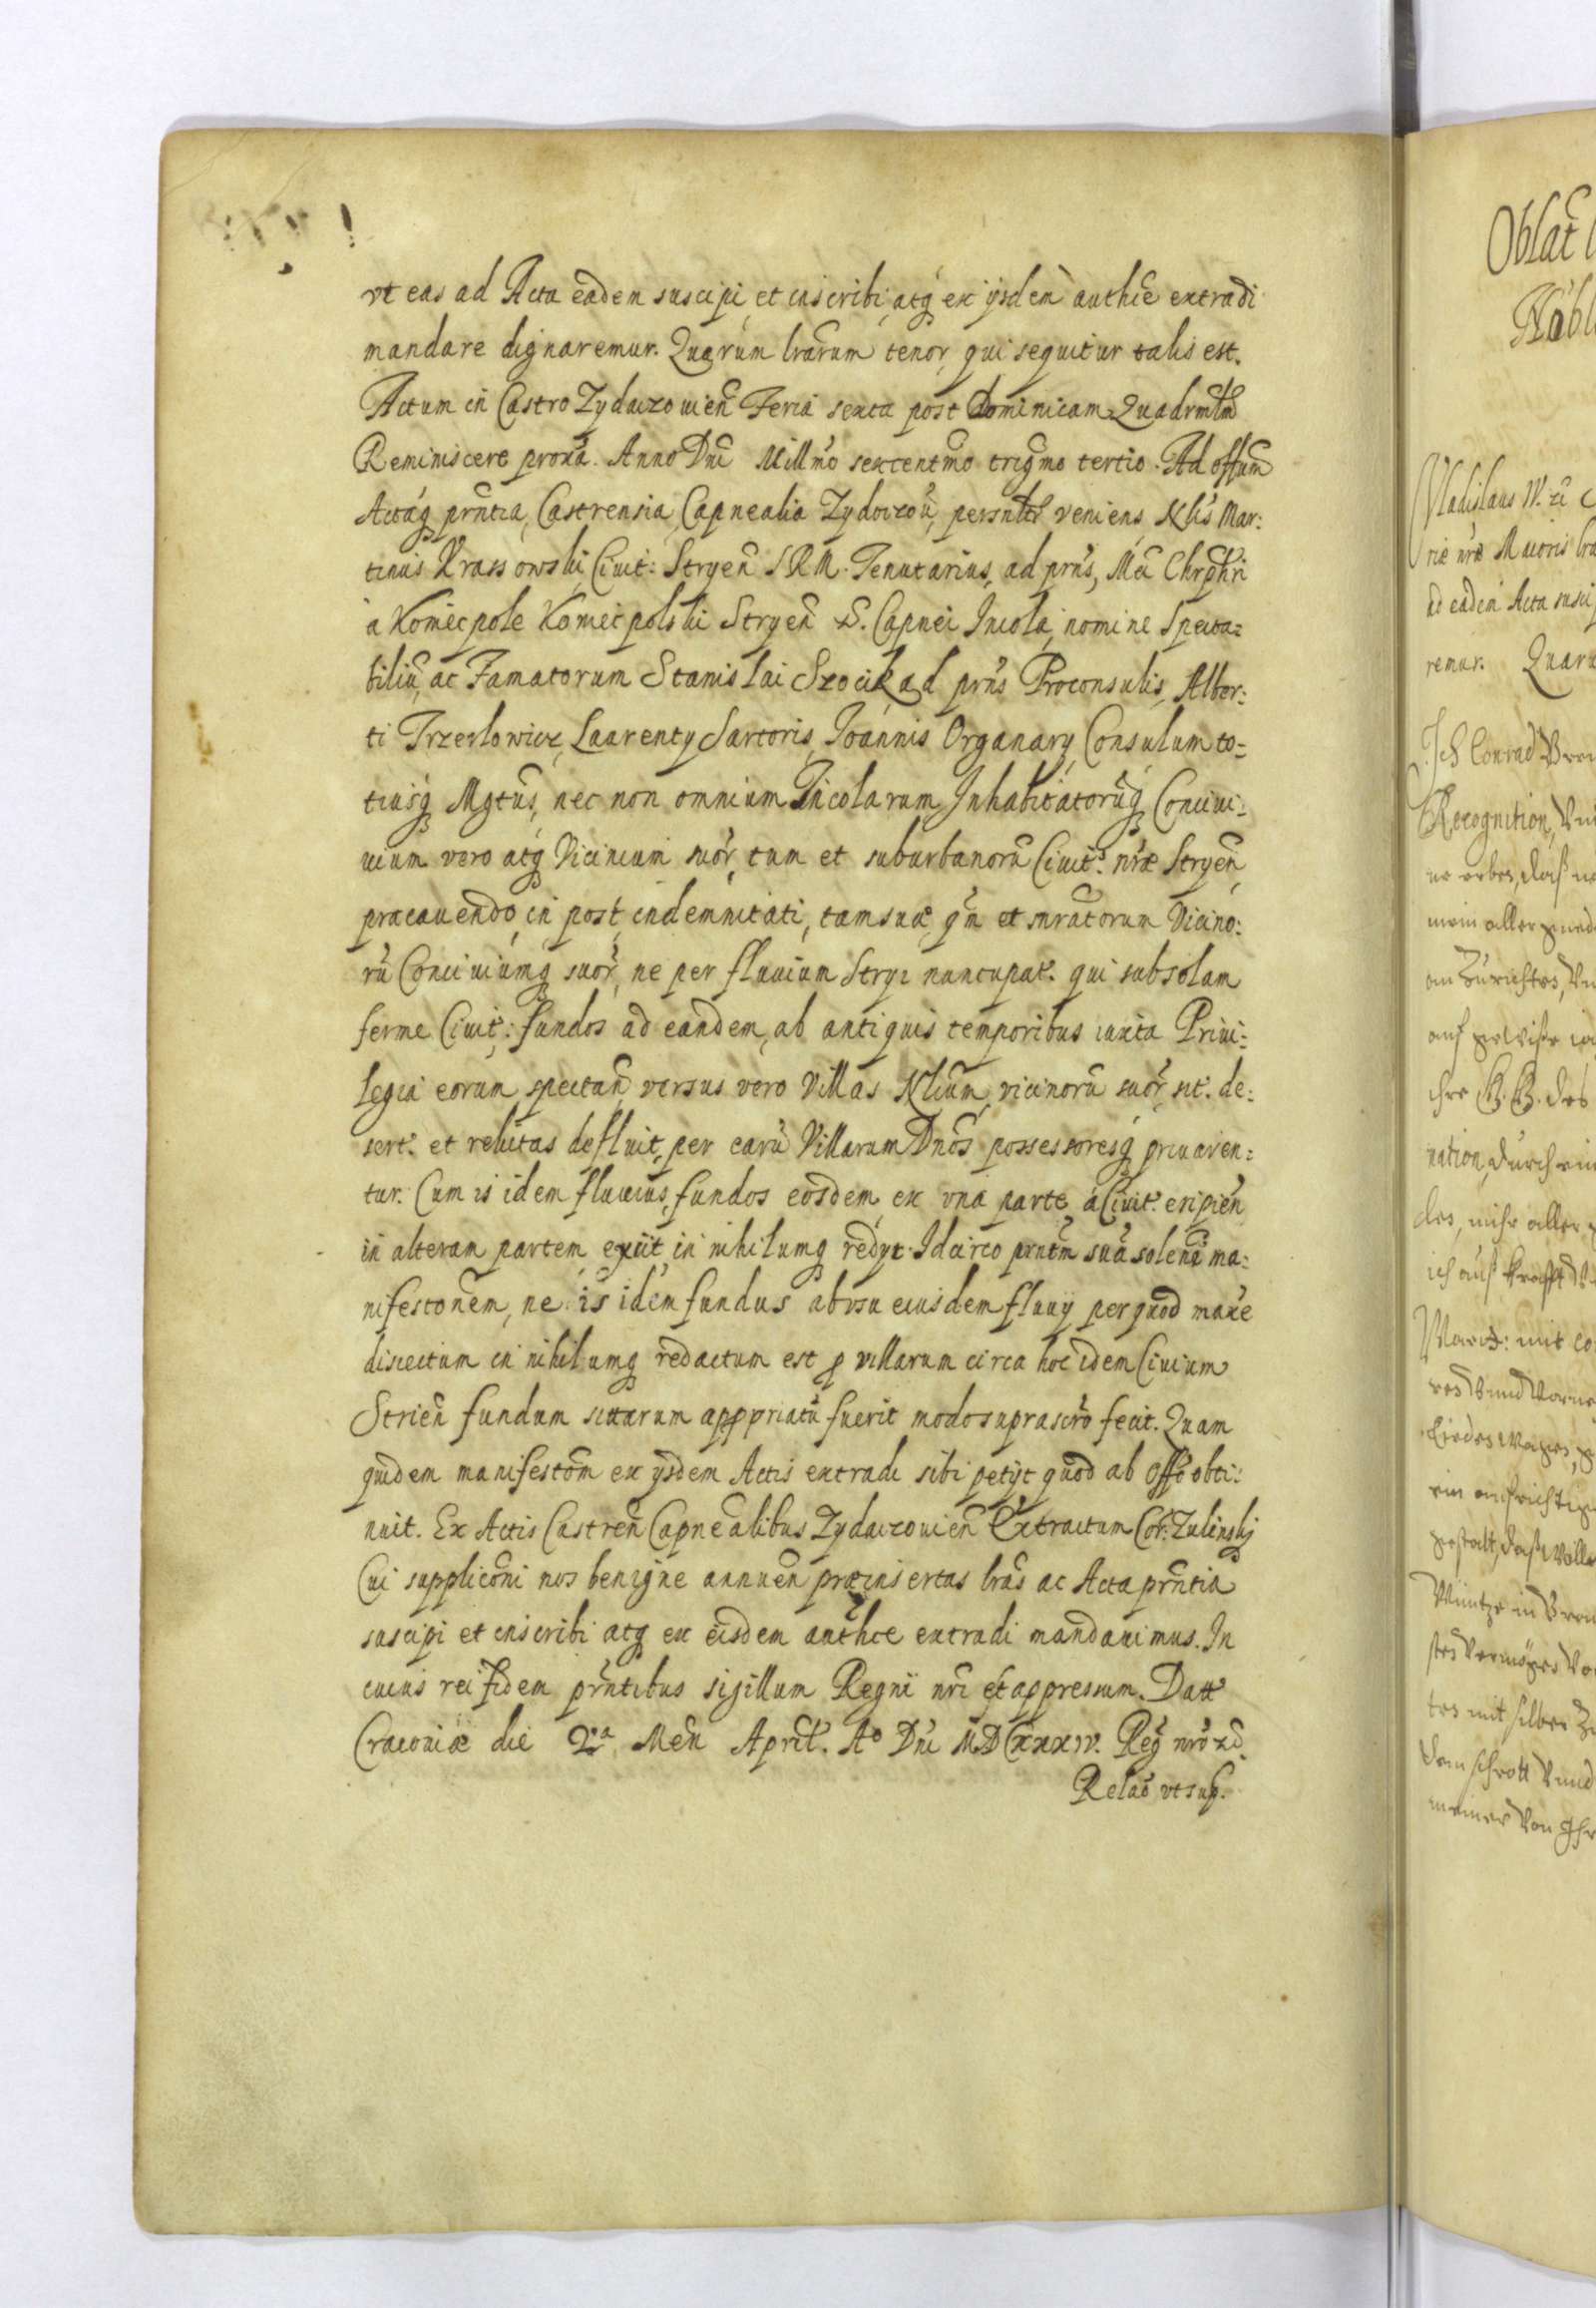 vt eas ad Acta eadem suscipi, et inscribi, atq ex ijsdem authce extradi
mandare dignaremur. Quarum lrarum tenor, qui sequitur talis est.
Actum in Castro Zydaczouien Feria sexta post Dominicam Quadrmlm
Reminiscere proxa. Anno Dni Millmo sexcentmo trigmo tertio. Ad offum
Actaq prntia, Castrensia Capnealia Zydaczou, persnlr veniens Nlis Mar:
tinus Krassowski Ciuit: Stryen S R M. Tenutarius, ad prns, Mci Chrphri
a Koniecpole Koniecpolski Stryen &. Capnei Incola, nomine Specta=
biliu, ac Famatorum Stanislai Szocik ad prns Proconsulis, Alber:
ti Trzesłowicz, Laurenty Sartoris, Joannis Organary, Consulum to=
tiusq Mgtus, nec non omnium Incolarum Inhabitatoruq Conciui:
uium vero atq Vicinium suor, tum et suburbanoru Ciuit. nræ Stryen,
præcauendo, in post, indemnitati, tam suæ, qm et snratorum Vicino:
ru Conciuiumq suor, ne per fluuium Stryi nuncupat. qui sub solam
ferme Ciuit: fundos ad eandem, ab antiquis temporibus iuxta Priui:
legia eorum spectan, versus vero Villas Nlium, vicinoru suor, sit. de:
sert. et relictas defluit, per earu Villarum Dnos possessoresq priuaren=
tur. Cum is idem fluuius, fundos eosdem ex vna parte a Ciuit. eripien
in alteram partem exiit, in nihilumq redyt. Idcirco prntm sua solenem ma:
nifestonem, ne is idem fundus ab vsu eiusdem fluuij per quod maxe
disiectum in nihilumq redactum est p villarum circa hoc idem Ciuium
Strien fundum sitarum apppriatu fuerit modo suprascro fecit. Quam
quidem manifestom ex ysdem Actis extradi sibi petyt quod ab offo obti:
nuit. Ex Actis Castren Capnealibus Zydaczouien Extractum Cor: Zulinskj
Cui suppliconi nos benigne annuen præinsertas lras ac Acta prntia
suscipi et inscribi atq ex eisdem authce extradi mandauimus. In
cuius rei fidem prntibus sigillum Regni nri et appressum. Datt
Cracouiæ die 2a Men April. Ao Dni MDCXXXIV. Reg nro
Relao vt sup.
Oblat
Vladislaus IV.
riæ nræ Maioris
ad eadem Acta susci
remur. Quaru
Ich Conrad
Recognition,
nation, durch